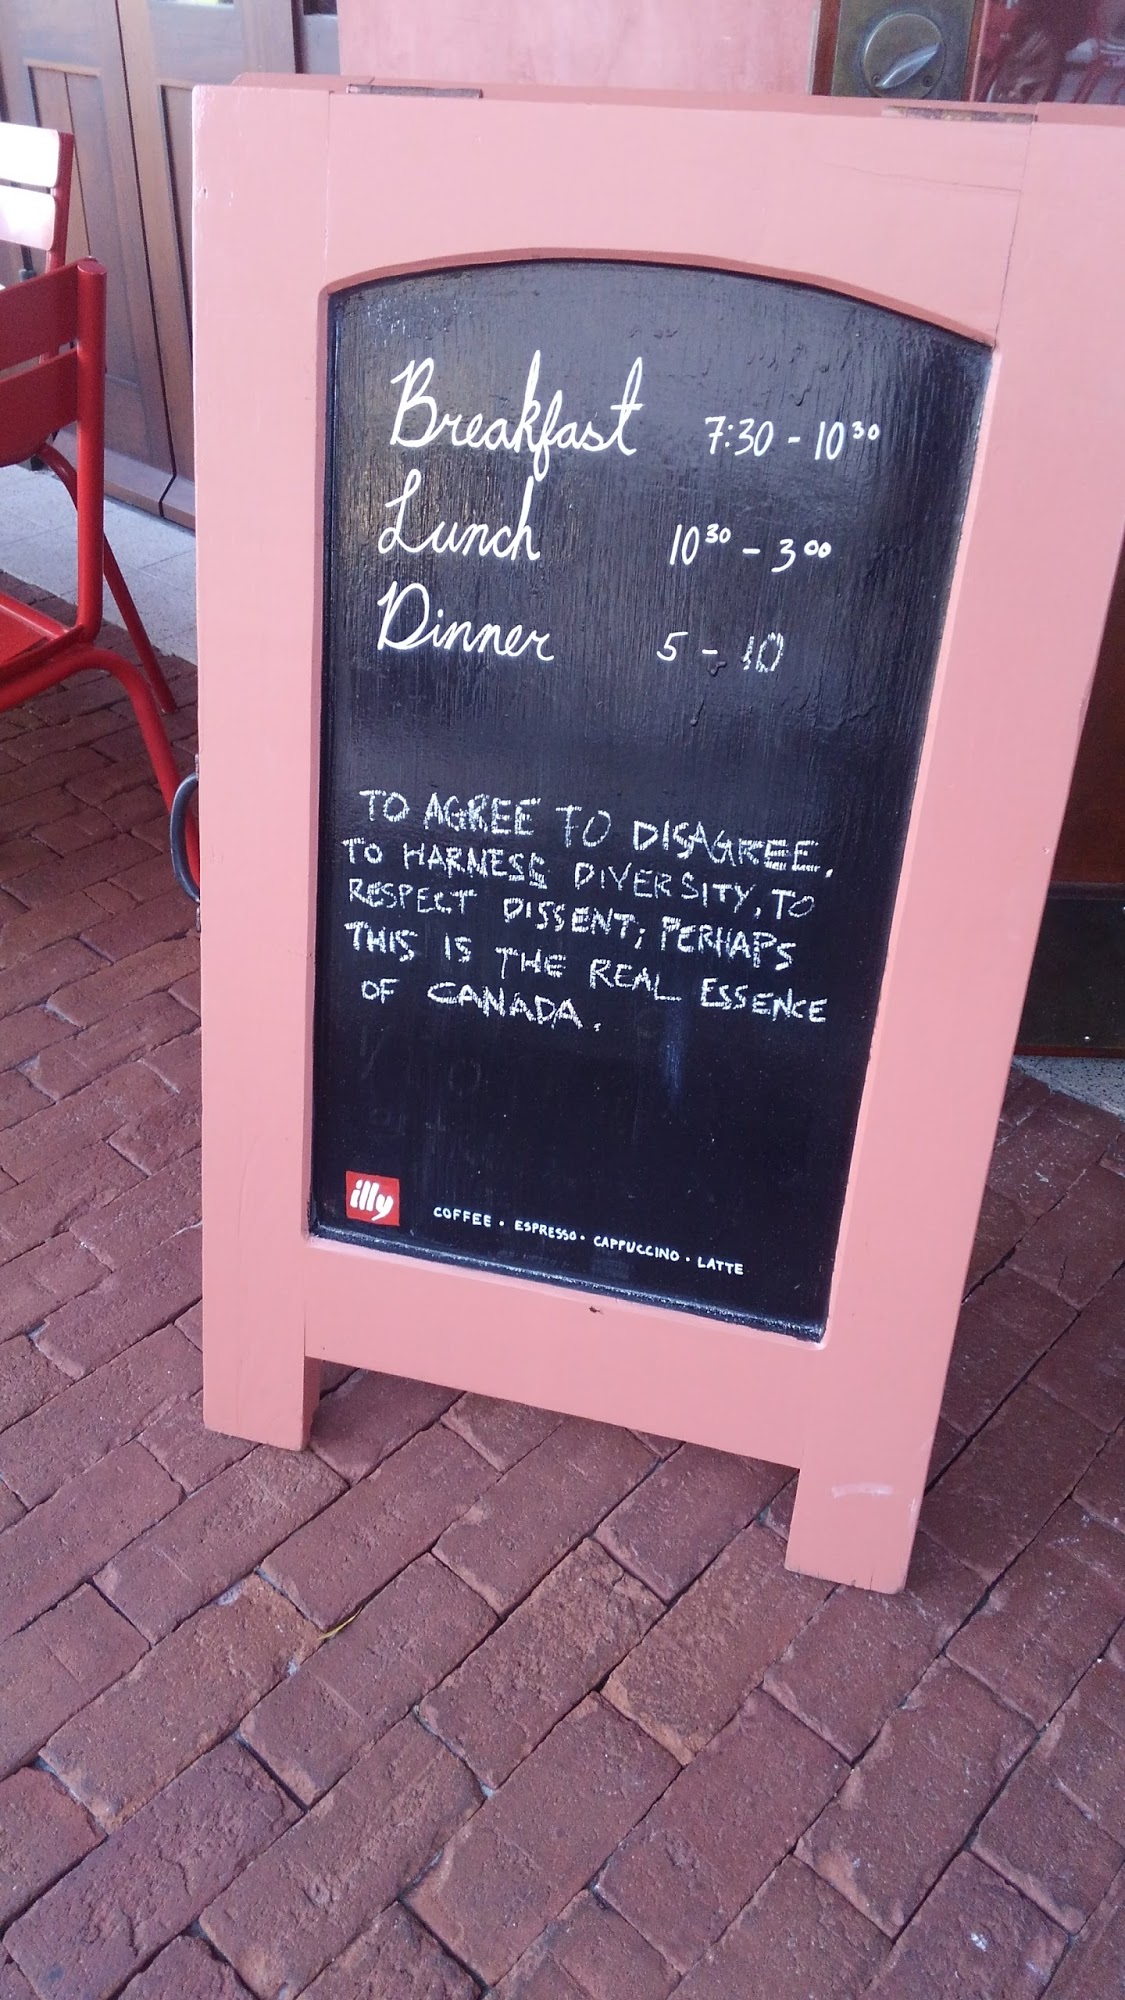 Breakfast 7:30 - 10³⁰
Lunch 10³⁰ - 3⁰⁰
Dinner 5 - 10
TO AGREE TO DISAGREE,
TO HARNESS DIVERSITY, TO
RESPECT DISSENT; PERHAPS
THIS IS THE REAL ESSENCE
OF CANADA.
illy
COFFEE · ESPRESSO · CAPPUCCINO · LATTE